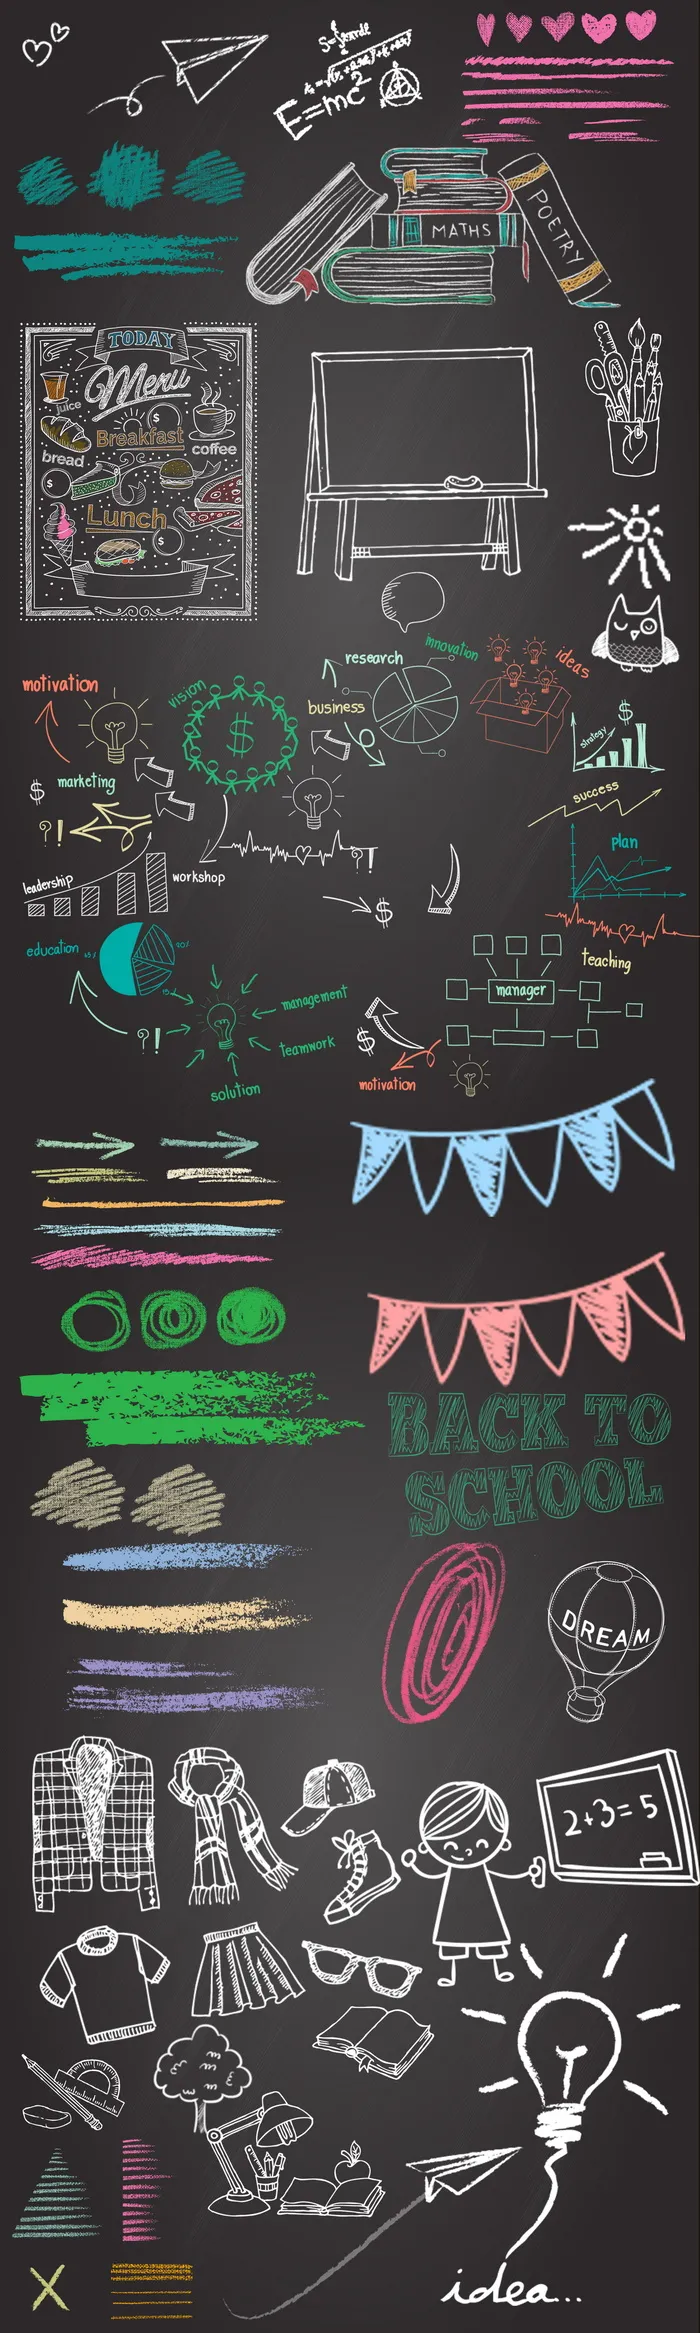 E=mc²
MATHS
POETRY
TODAY
Menu
juice
$
Breakfast
bread
coffee
$
Lunch
$
innovation
research
ideas
motivation
vision
business
$
$
strategy
marketing
$
success
?!
plan
?!
leadership
workshop
$
education
teaching
manager
management
?!
$
teamwork
motivation
solution
BACK TO
SCHOOL
DREAM
2+3=5
idea...